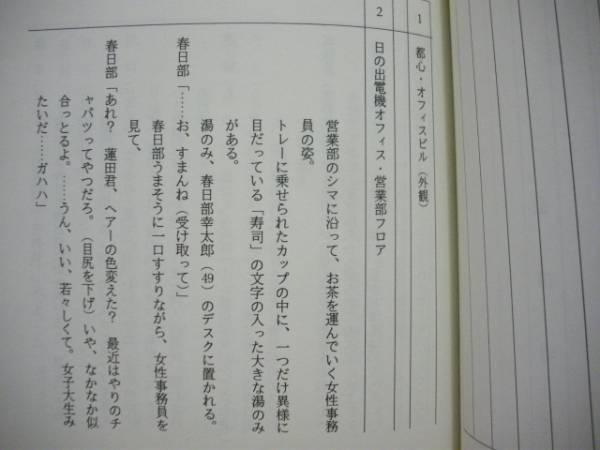 1 都心・オフィスビル（外観）
2 日の出電機オフィス・営業部フロア
営業部のシマに沿って、お茶を運んでいく女性事務
員の姿。
トレーに乗せられたカップの中に、一つだけ異様に
目だっている「寿司」の文字の入った大きな湯のみ
がある。
湯のみ、春日部幸太郎（49）のデスクに置かれる。
春日部「……お、すまんね（受け取って）」
春日部うまそうに一口すすりながら、女性事務員を
見て、
春日部「あれ？　蓮田君、ヘアーの色変えた？　最近はやりのチ
ャパツってやつだろ。（目尻を下げ）いや、なかなか似
合っとるよ。……うん、いい、若々しくて。女子大生み
たいだ……ガハハ」